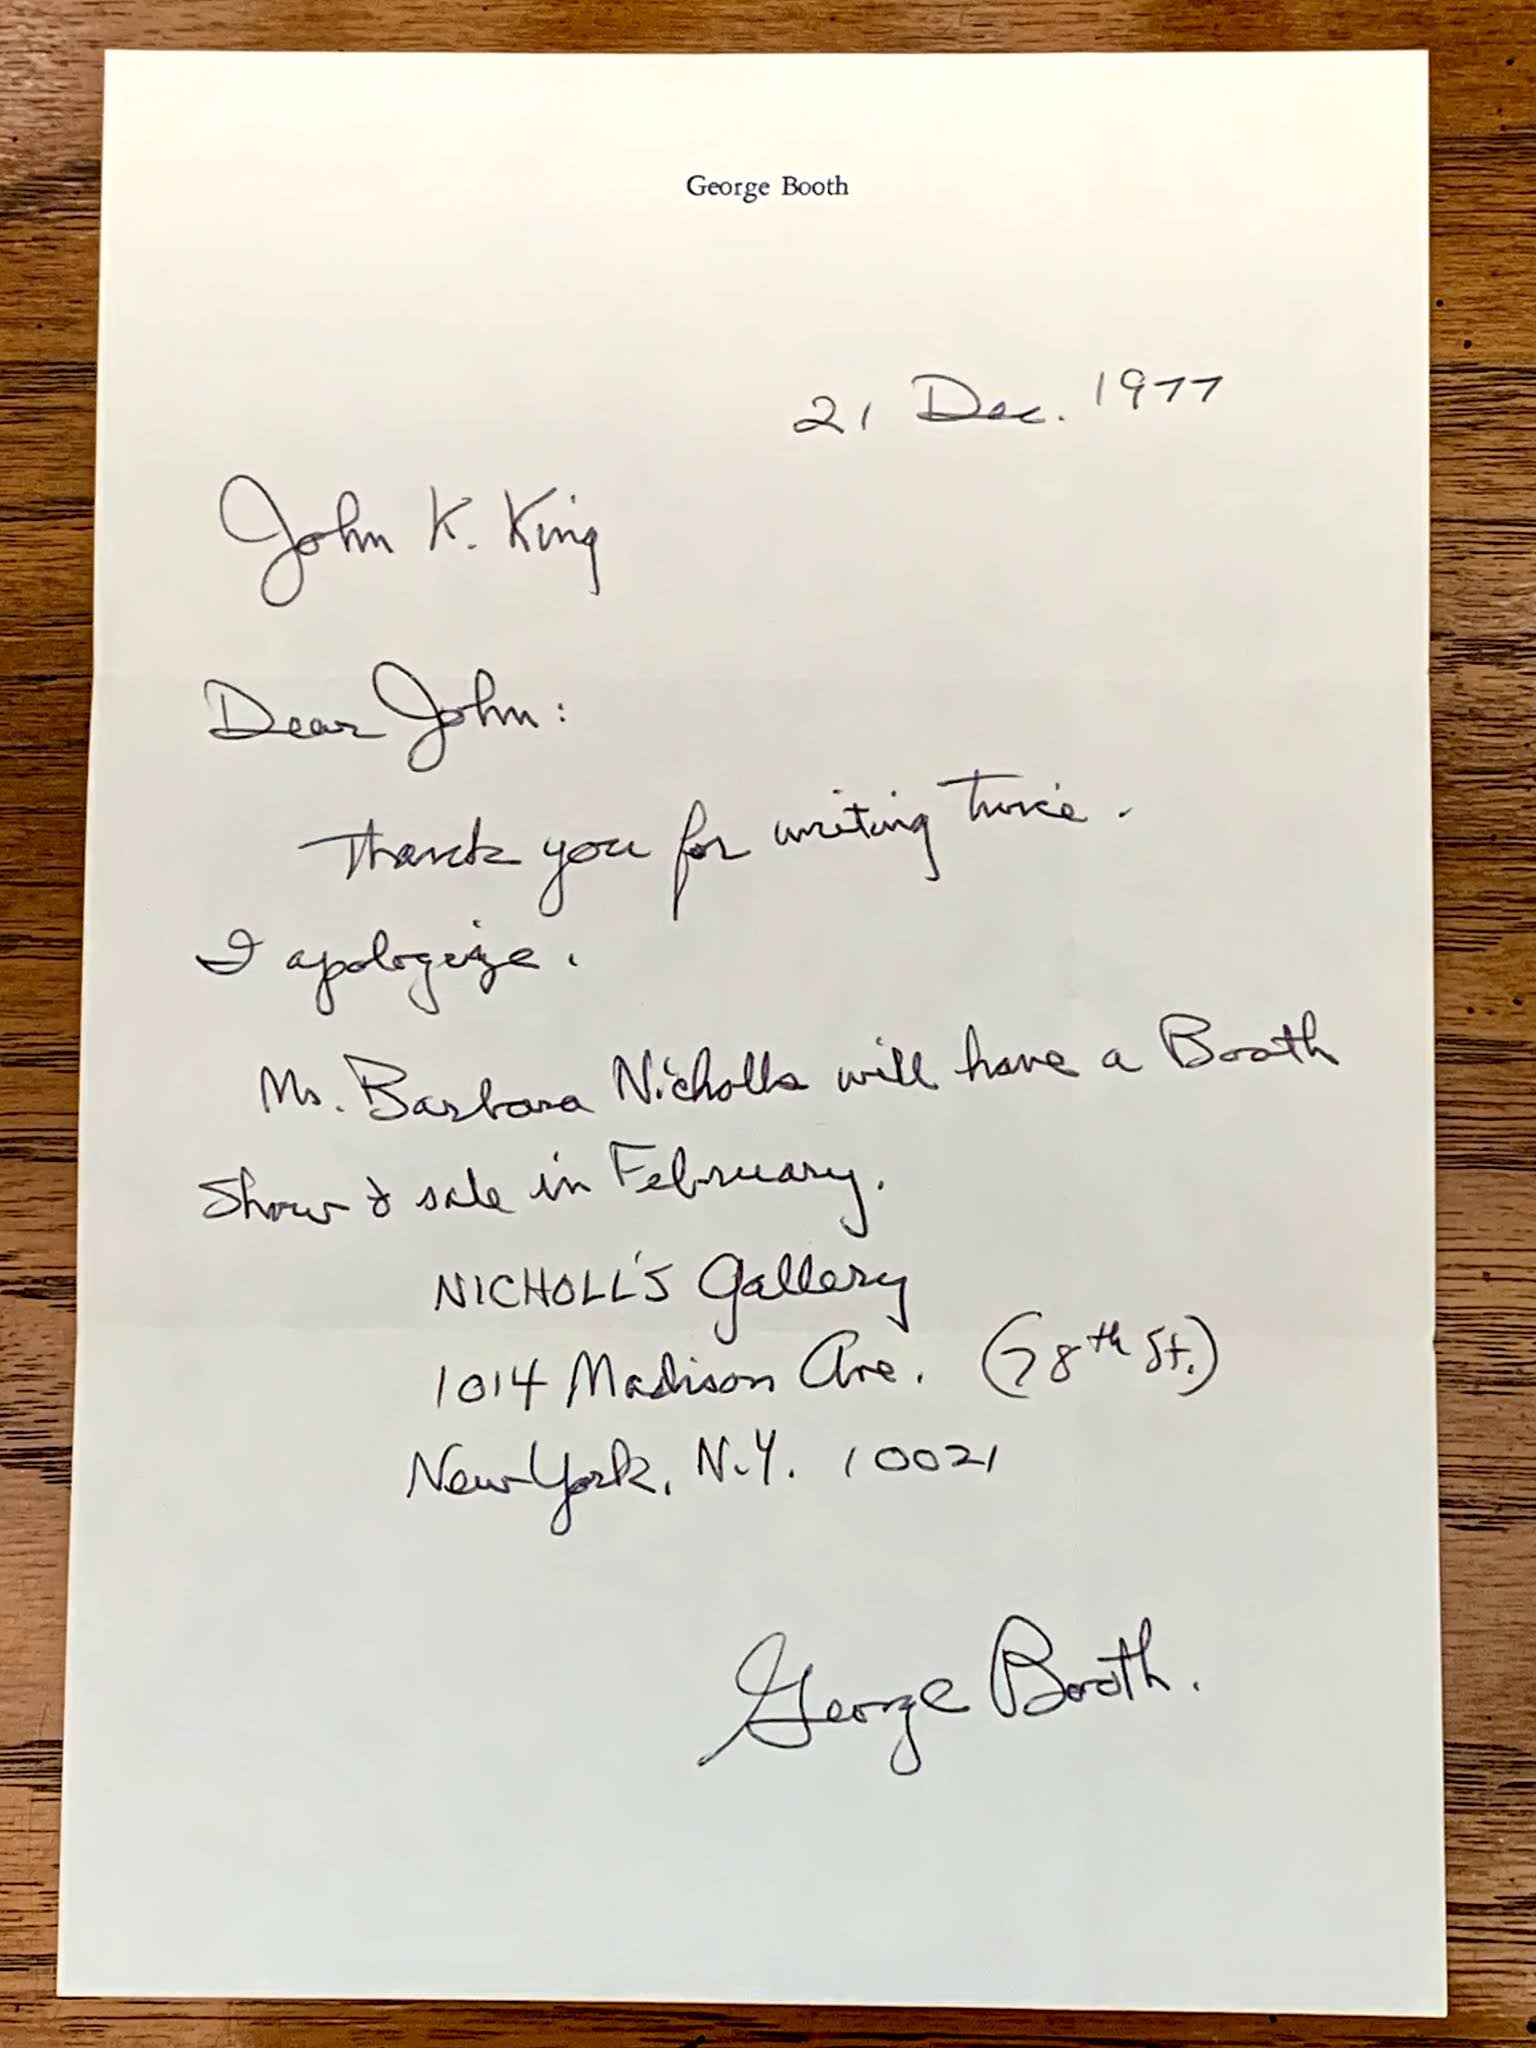 George Booth
21 Dec. 1977
John K. King
Dear John:
Thank you for writing twice.
I apologize.
Ms. Barbara Nicholls will have a Booth
Show & sale in February.
NICHOLL'S Gallery
1014 Madison Ave. (78th St.)
New York, N.Y. 10021
George Booth.